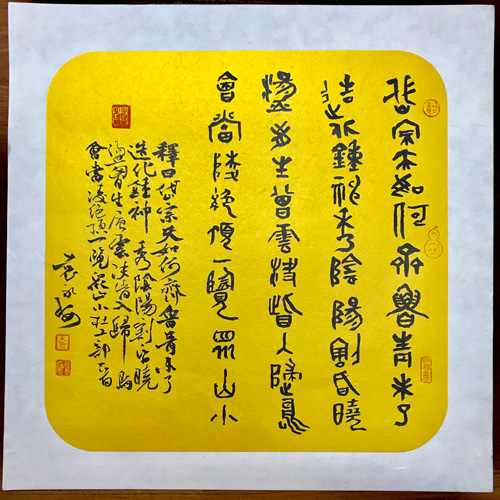 岱宗夫如何齊魯青未了
造化鍾神秀陰陽割昏曉
盪胷生曾雲決眥入歸鳥
會當陵絕頂一覽眾山小
釋曰岱宗夫如何齊魯青未了
造化鍾神秀陰陽割昏曉
盪胷生層雲決眥入歸鳥
會當凌絕頂一覽眾山小杜工部句